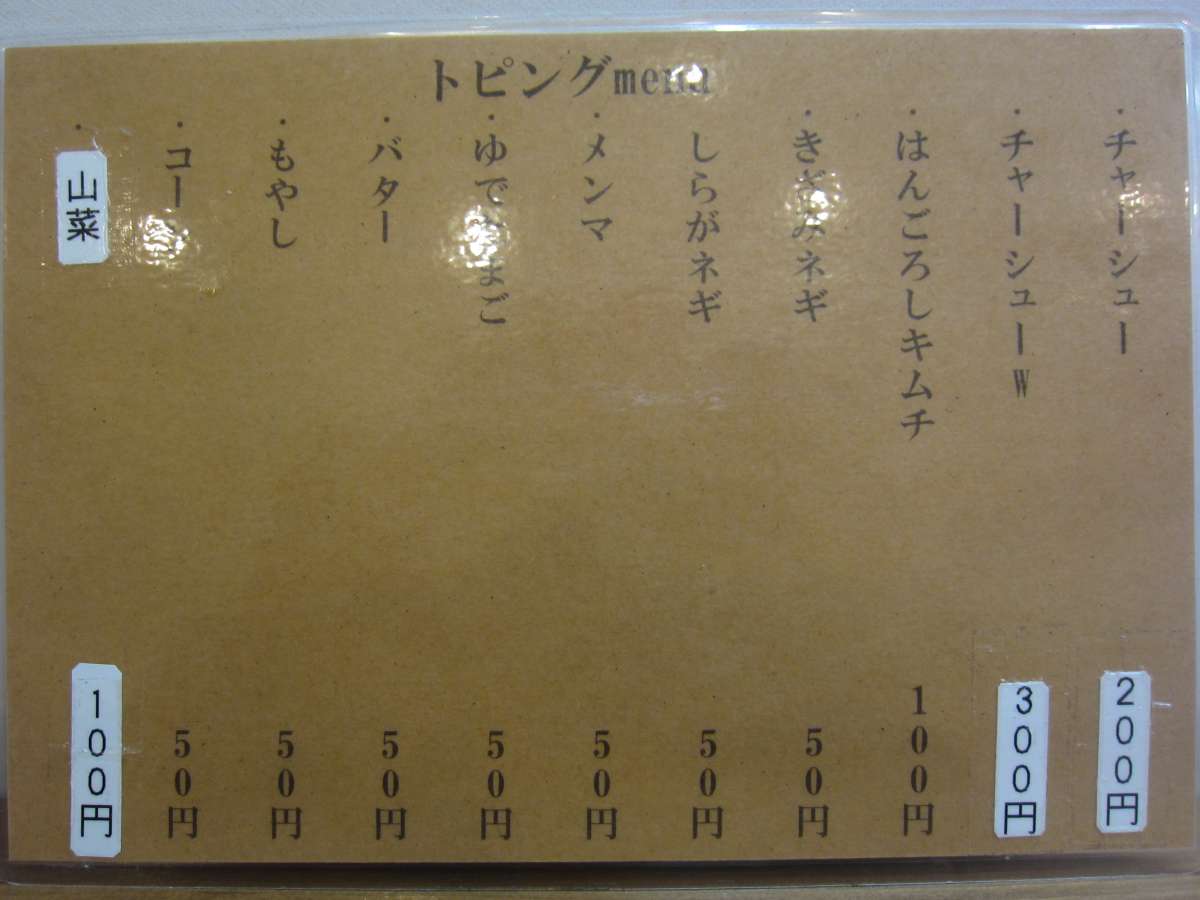 トピングmenu
・チャーシュー 200円
・チャーシューW 300円
・はんごろしキムチ 100円
・きざみネギ 50円
しらがネギ 50円
・メンマ 50円
・ゆでたまご 50円
・バター 50円
・もやし 50円
・コーン 50円
・山菜 100円